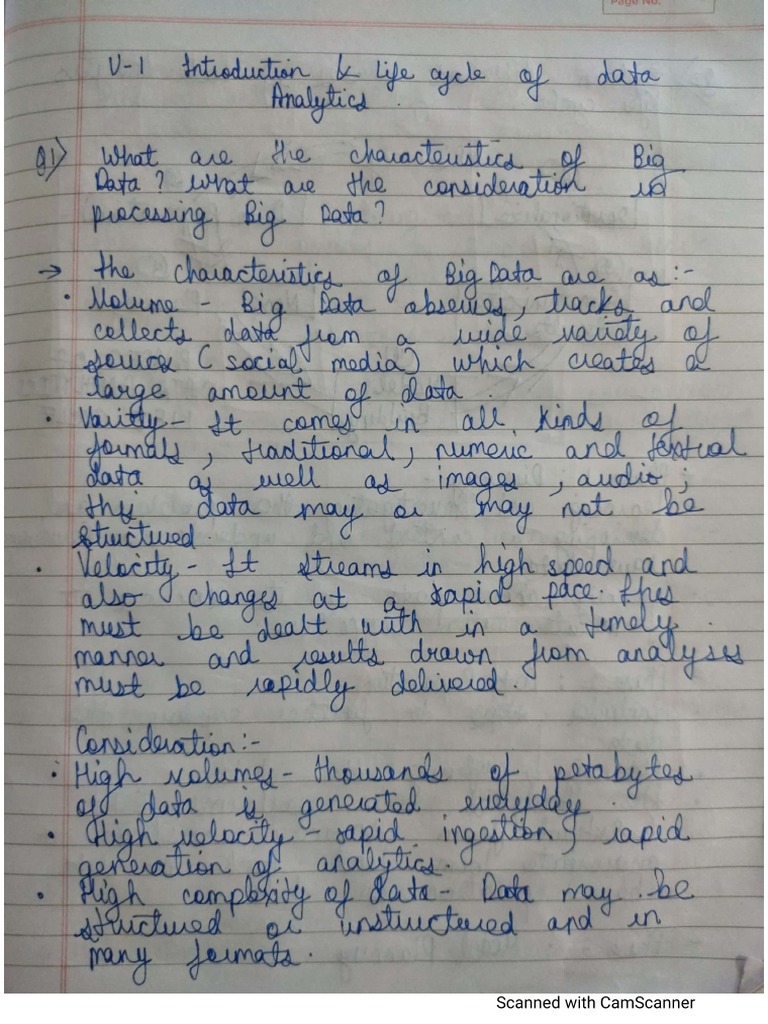 Page No.
U-1 Introduction & Life cycle of data
Analytics.
Q1) What are the characteristics of Big
Data? What are the consideration in
processing Big Data?
→ the characteristics of Big Data are as:-
• Volume - Big Data observes, tracks and
collects data from a wide variety of
source (social media) which creates a
large amount of data.
• Variety - It comes in all kinds of
formats, traditional, numeric and textual
data as well as images, audio;
this data may or may not be
structured.
• Velocity - It streams in high speed and
also changes at a rapid pace. this
must be dealt with in a timely
manner and results drawn from analyses
must be rapidly delivered.
Consideration:-
• High volumes - thousands of petabytes
of data is generated everyday.
• High velocity - rapid ingestion, rapid
generation of analytics.
• High complexity of data - Data may be
structured or unstructured and in
many formats.
Scanned with CamScanner